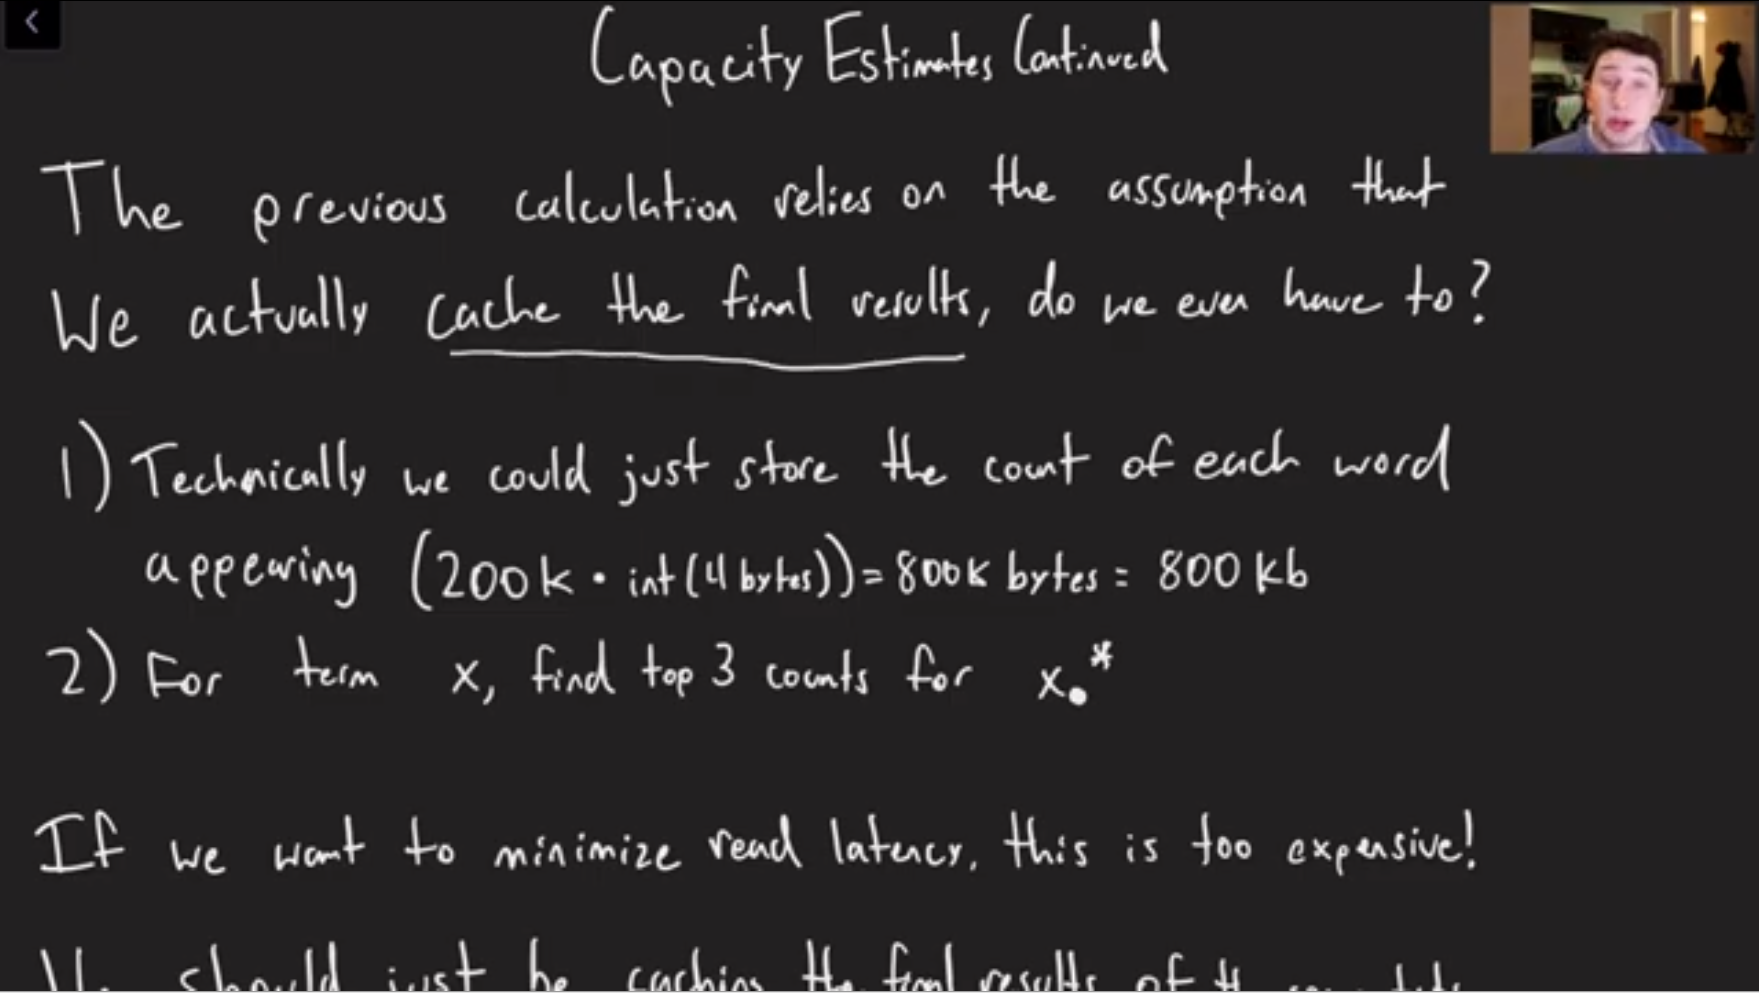 Capacity Estimates Continued
The previous calculation relies on the assumption that
We actually cache the final results, do we even have to?
1) Technically we could just store the count of each word
appearing (200k · int(4 bytes)) = 800k bytes = 800 kb
2) For term x, find top 3 counts for x.*
If we want to minimize read latency, this is too expensive!
We should just be caching the final results of